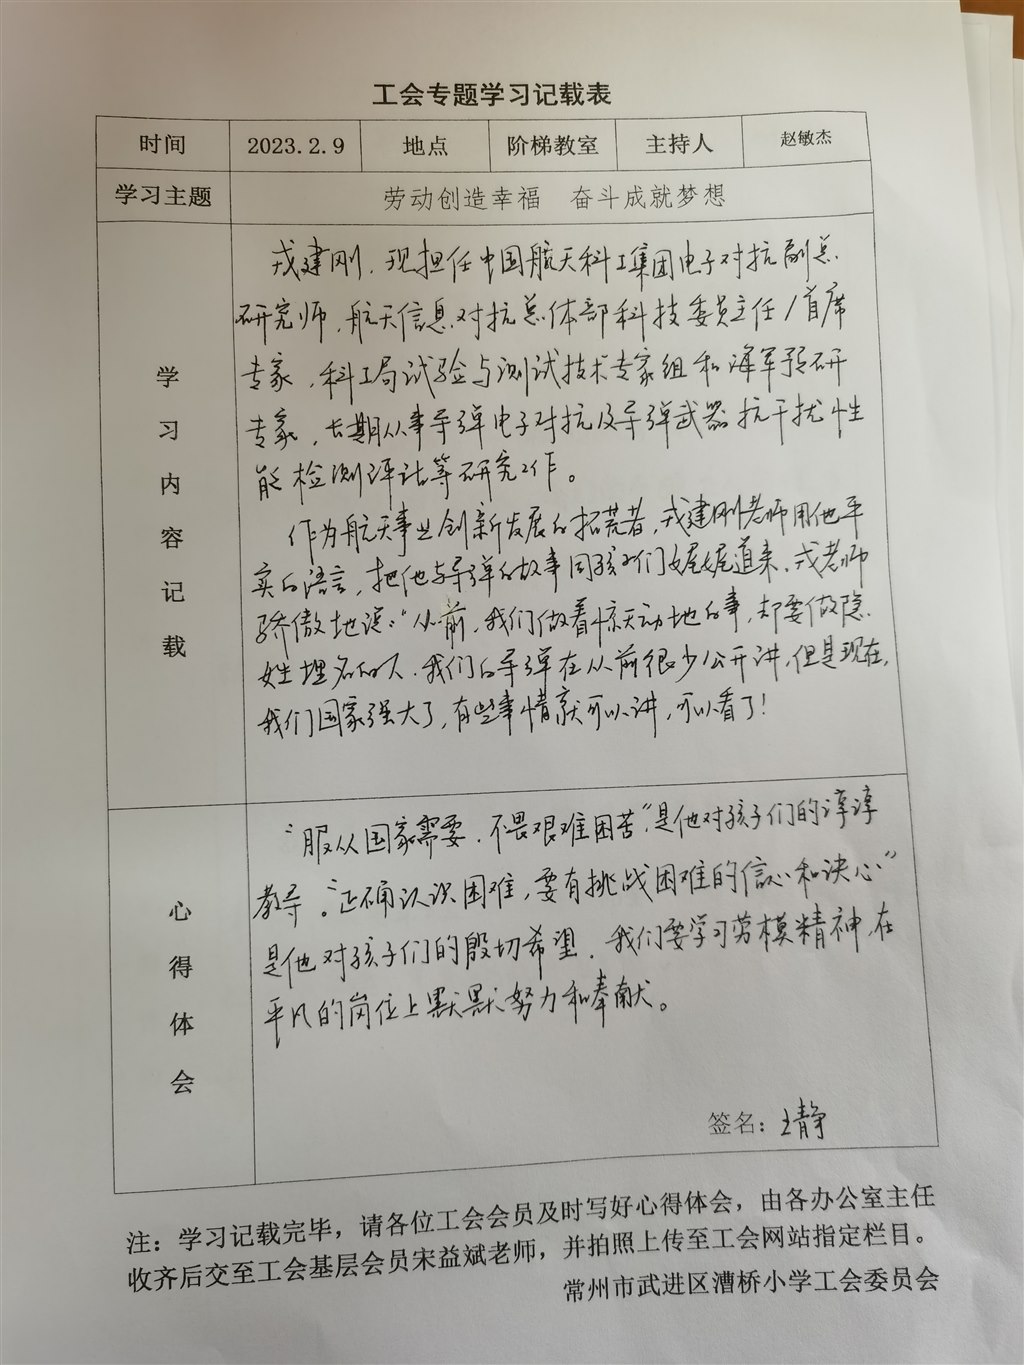 工会专题学习记载表
时间 2023.2.9 地点 阶梯教室 主持人 赵敏杰
学习主题 劳动创造幸福 奋斗成就梦想
学习内容记载
戎建刚，现担任中国航天科工集团电子对抗副总
研究师，航天信息对抗总体部科技委员主任/首席
专家，科工局试验与测试技术专家组和海军预研
专家，长期从事导弹电子对抗及导弹武器抗干扰性
能检测评估等研究工作。
作为航天事业创新发展的拓荒者，戎建刚老师用他平
实的语言，把他与导弹的故事同孩子们娓娓道来，戎老师
骄傲地说：“从前，我们做着惊天动地的事，却要做隐
姓埋名的人，我们的导弹在从前很少公开讲，但是现在，
我们国家强大了，有些事情就可以讲，可以看了！
心得体会
“服从国家需要，不畏艰难困苦”，是他对孩子们的谆谆
教导。“正确认识困难，要有挑战困难的信心和决心”
是他对孩子们的殷切希望，我们要学习劳模精神，在
平凡的岗位上默默努力和奉献。
签名：王静
注：学习记载完毕，请各位工会会员及时写好心得体会，由各办公室主任
收齐后交至工会基层会员宋益斌老师，并拍照上传至工会网站指定栏目。
常州市武进区漕桥小学工会委员会